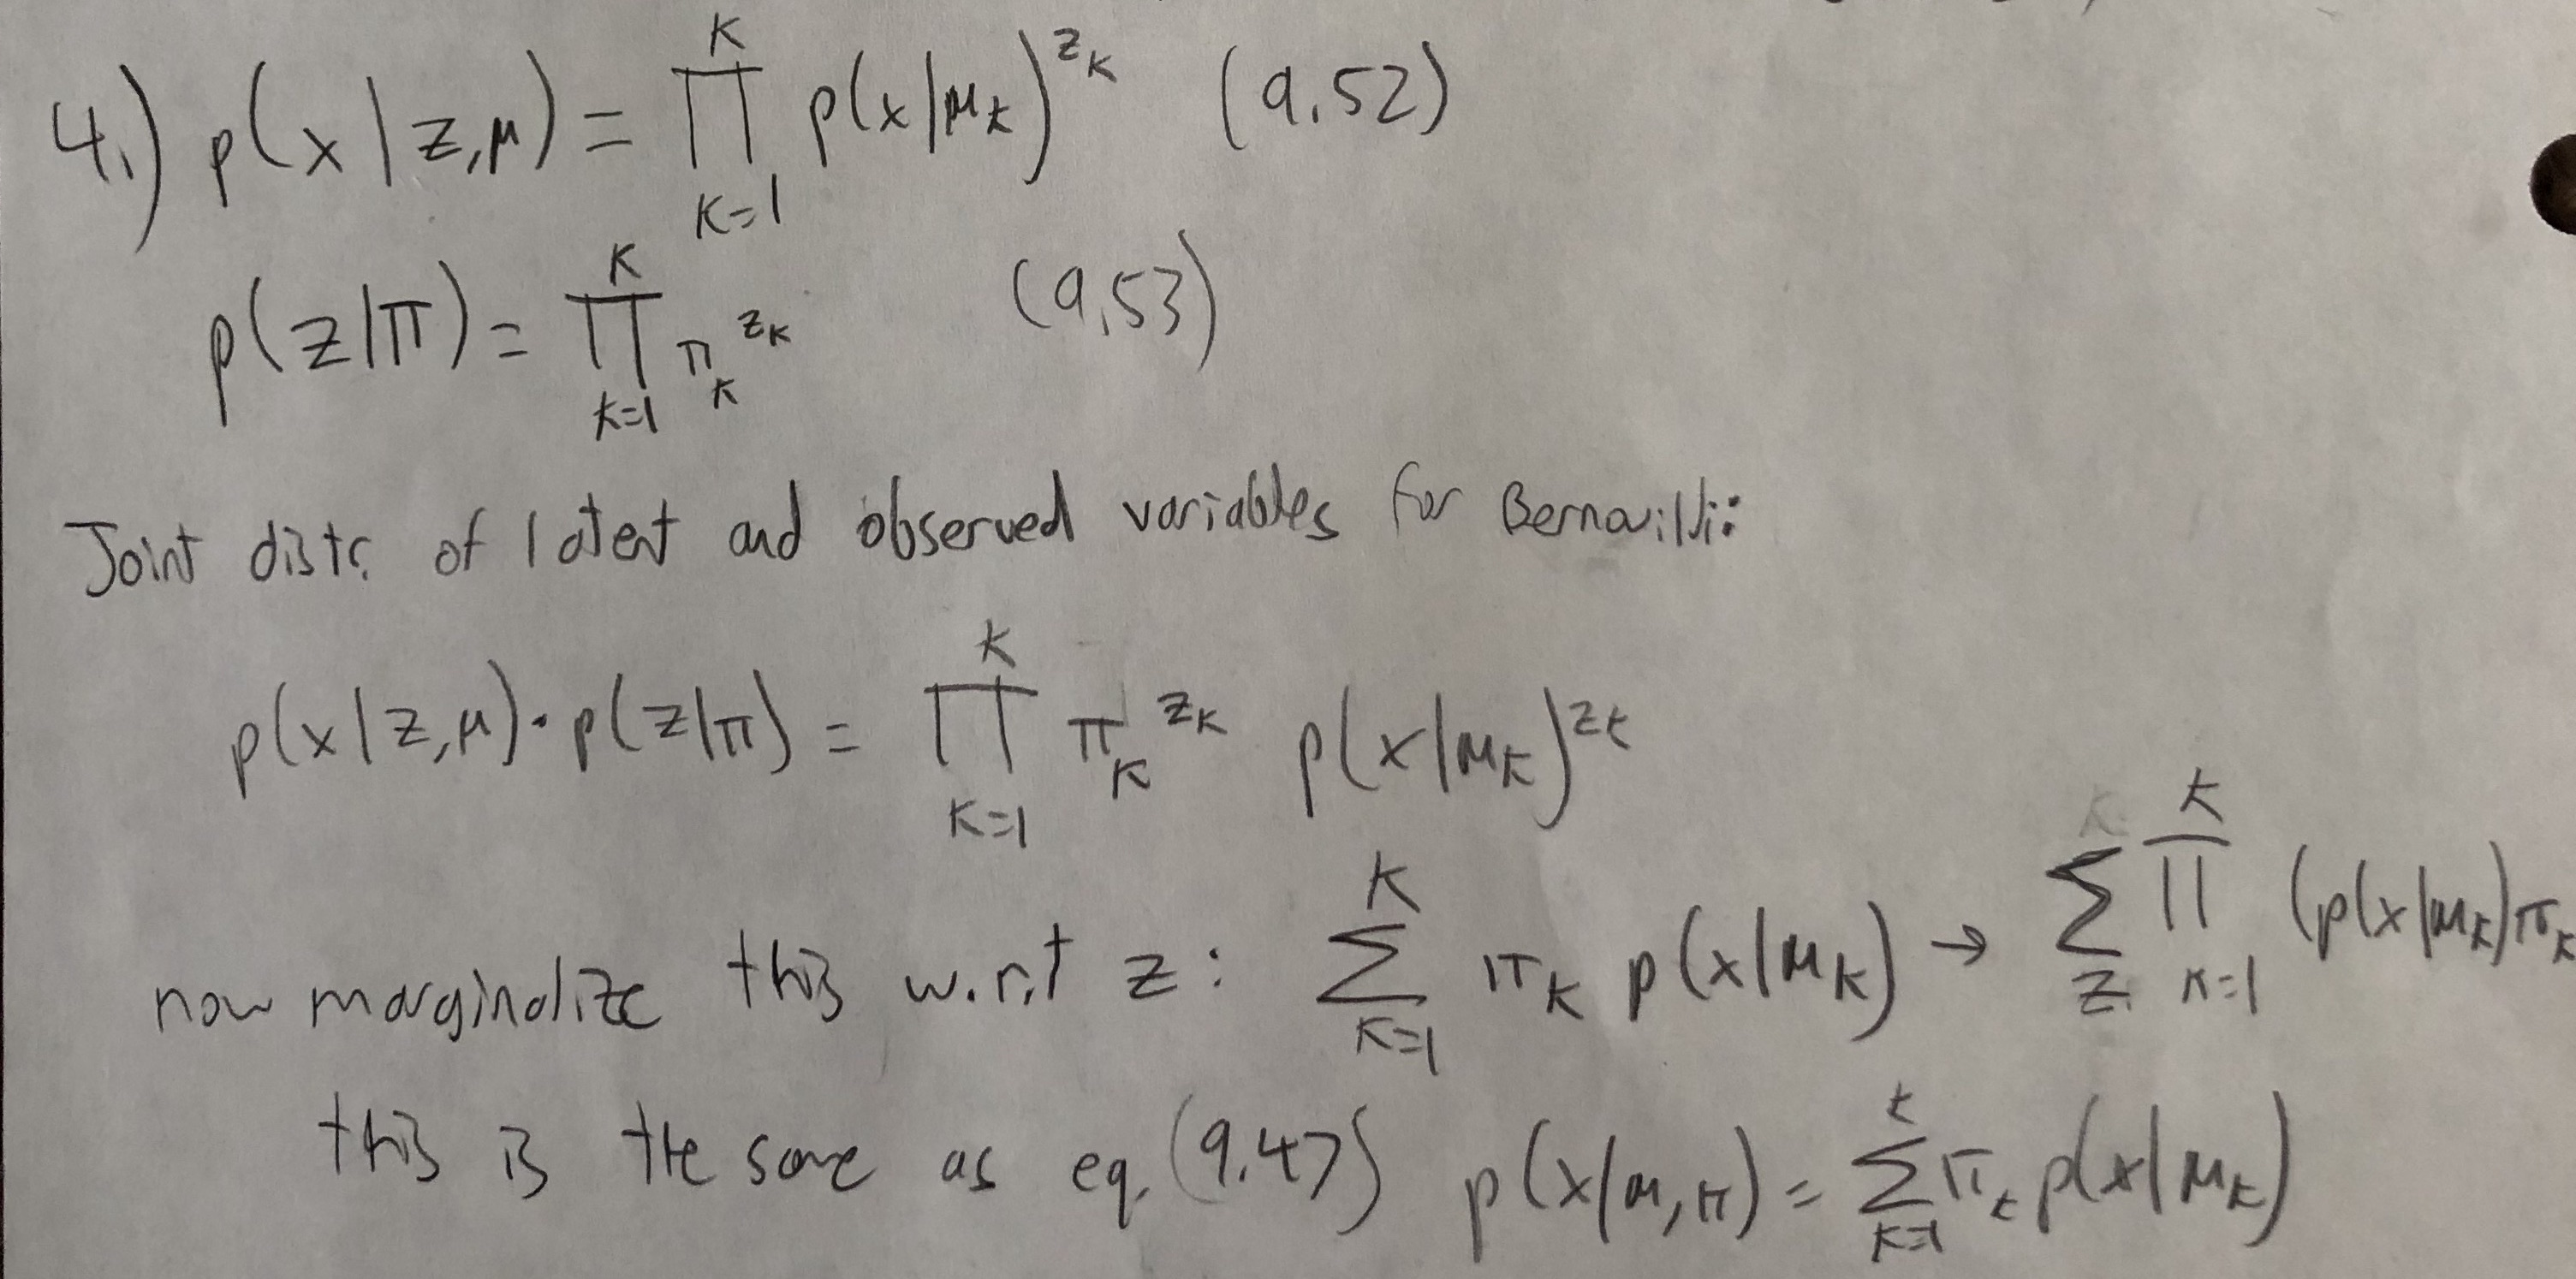 4.) p(x|z,μ) = ∏_{k=1}^{K} p(x|μ_k)^{z_k} (9.52)
p(z|π) = ∏_{k=1}^{K} π_k^{z_k} (9.53)
Joint distr. of latent and observed variables for Bernoulli:
p(x|z,μ)·p(z|π) = ∏_{k=1}^{K} π_k^{z_k} p(x|μ_k)^{z_k}
now marginalize this w.r.t z: ∑_{k=1}^{K} π_k p(x|μ_k) → ∑_{z} ∏_{k=1}^{K} (p(x|μ_k)π_k
this is the same as eq. (9.47) p(x|μ,π) = ∑_{k=1}^{K} π_k p(x|μ_k)